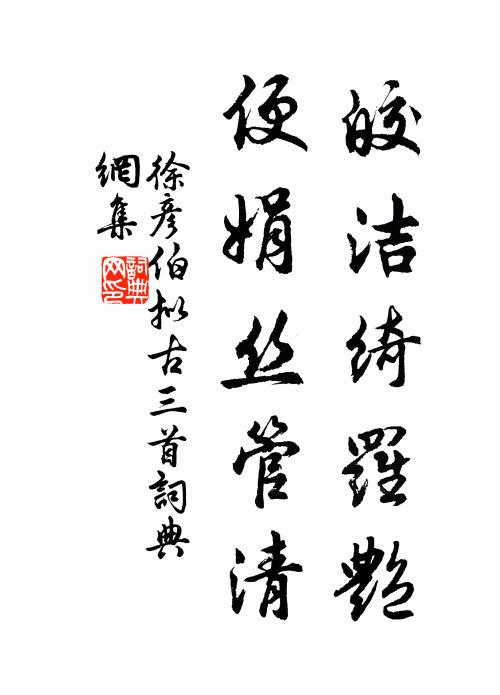 皎洁绮羅艷
便娟丝管清
徐彦伯拟古三首詞典
網集
詞典网印